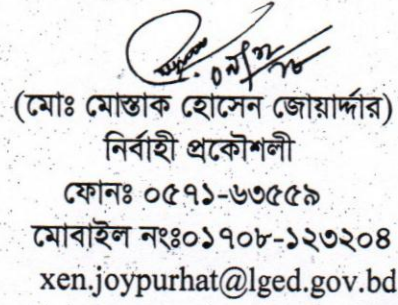 (মোঃ মোস্তাক হোসেন জোয়ার্দ্দার)
নির্বাহী প্রকৌশলী
ফোনঃ ০৫৭১-৬৩৫৫৯
মোবাইল নংঃ০১৭০৮-১২৩২০৪
xen.joypurhat@lged.gov.bd